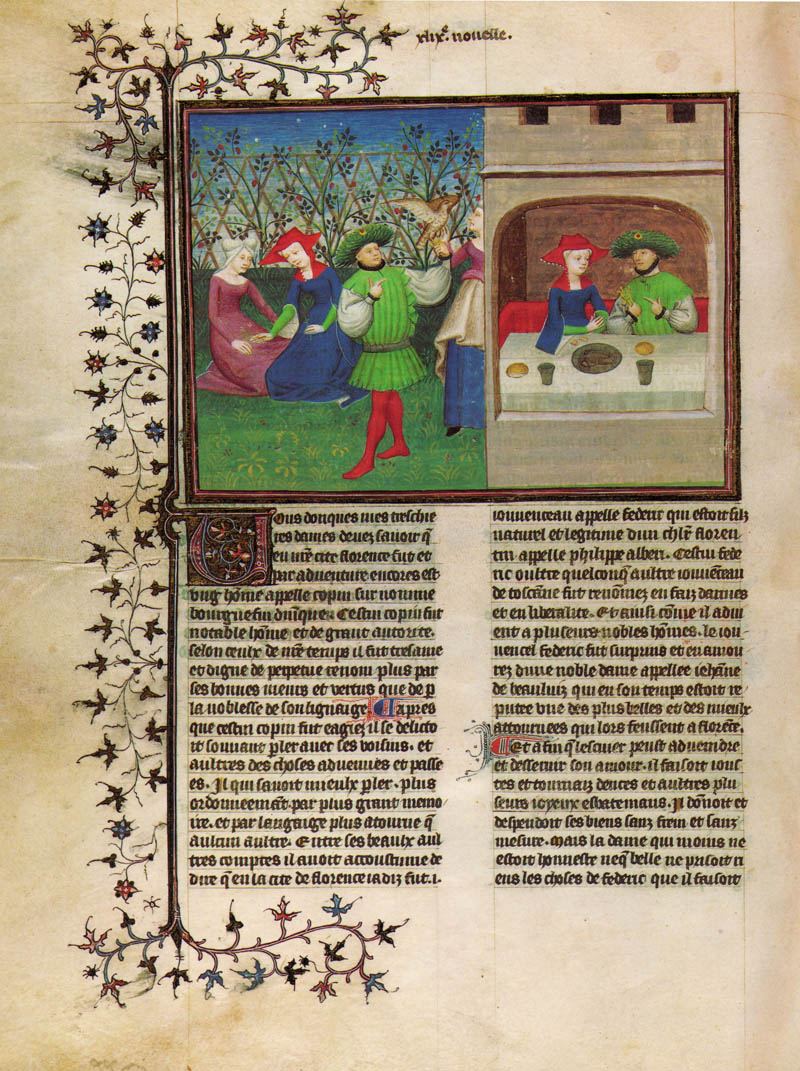 xlixe. nouelle.
Vous donques mes treschie
res dames deuez sauoir q̄
en nr̄e cite florence fut et
par aduenture encores est
vng hōme appelle copin surnomme
bourguesin dn̄ique. Cestui copin fut
notable hōme et de grant autorite.
selon ceulx de nr̄e temps il fut tresame
et digne de perpetue renom plus par
ses bonnes meurs et vertus que de p̱
la noblesse de son lignaige. Apres
que cestui copin fut eagiez il se delicto
it souuant p̱ler auec ses voisins. et
aultres des choses aduenues et passe
es. Il qui sauoit mieulx p̱ler. plus
ordonneemāt. par plus grant memo
ire. et par langaige plus atourne q̄
aulcun aultre. Entre ses beaulx aul
tres comptes il auoit accoustume de
dire q̄ en la cite de florence iadiz fut .i.
iouuenceau appelle federic qui estoit filz
naturel et legitime dun chlr̄ floren
tin appelle philippe alberi. Cestui fede
ric oultre quelconq̄ aultre iouuēceau
de toscane fut renōmez en faiz darmes
et en liberalite. Et ainsi cōme il adui
ent a pluseurs nobles hōmes. le iou
uencel federic fut surpuns et enamou
rez dune noble dame appellee iehāne
de beauluiz qui en son temps estoit re
putee vne des plus belles et des mieulx
attournees qui lors feussent a florēce.
Et a fin q̄ lescuier peust aduendre
et desseruir son amour. il faisoit ious
tes et tournaiz dences et aultres plu
seurs ioyeux esbatemans. Il dōnoit et
despendoit ses biens sanz frein et sanz
mesure. mais la dame qui moins ne
estoit honneste neq̄ belle ne prisoit ri
ens les choses de federic que il faisoit